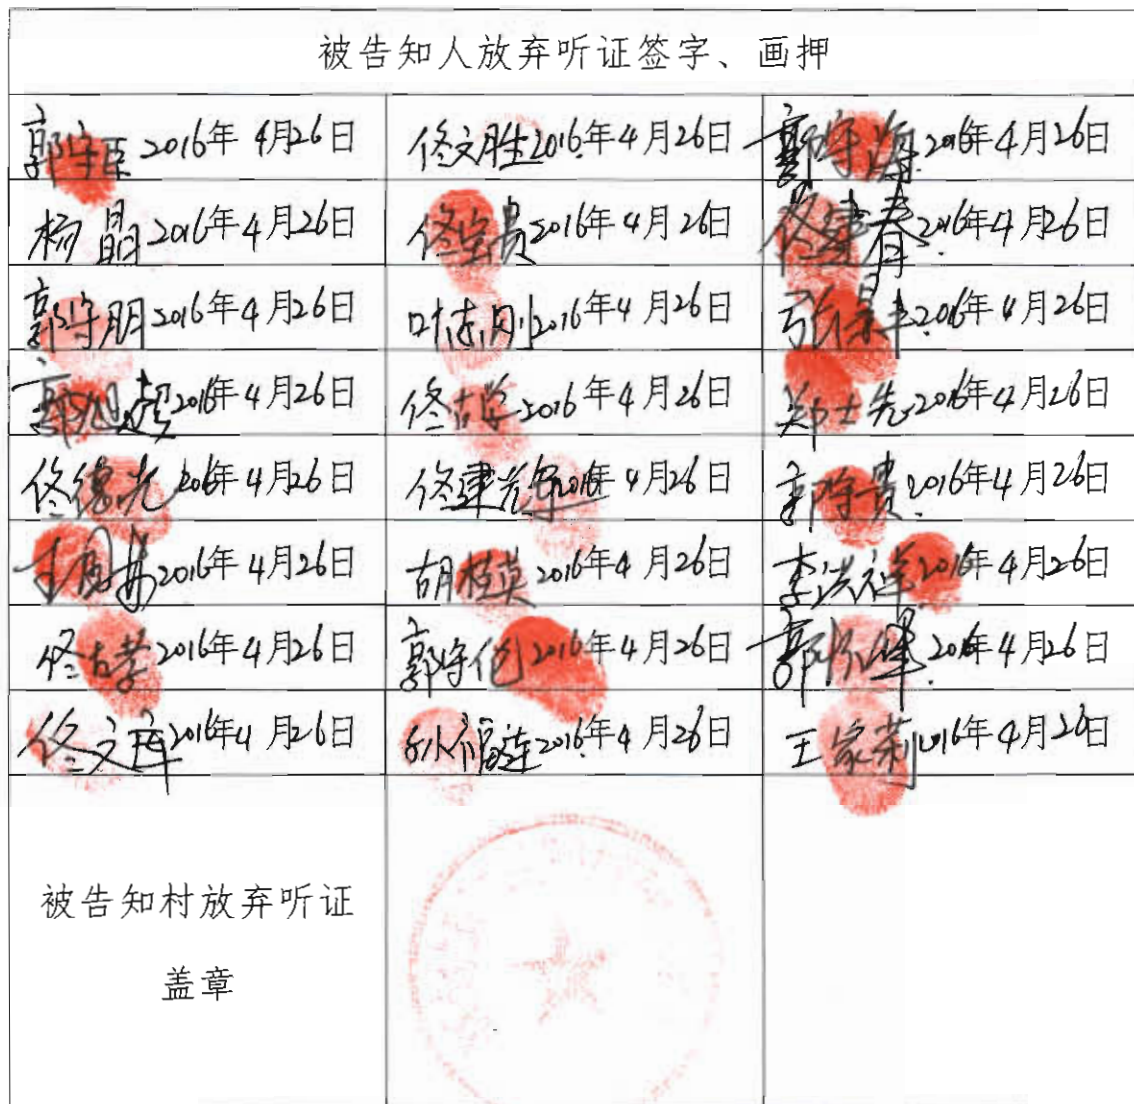 被告知人放弃听证签字、画押
郭守臣 2016年4月26日 佟文胜 2016.年4月26日 郭守海 2016年4月26日
杨晶 2016年4月26日 佟宝贵 2016年4月26日 佟建春 2016年4月26日
郭守朋 2016年4月26日 叶志刚 2016年4月26日 张景丰 2016年4月26日
郭旭超 2016年4月26日 佟古学 2016年4月26日 郑士先 2016年4月26日
佟德光 2016年4月26日 佟建光 2016年4月26日 郭守贵 2016年4月26日
2016年4月26日 胡桂英 2016年4月26日 李洪祥 2016年4月26日
佟古孝 2016年4月26日 郭守伦 2016年4月26日 2016年4月26日
佟文库 2016年4月26日 孙福连 2016年4月26日 王家莉 2016年4月26日
被告知村放弃听证
盖章